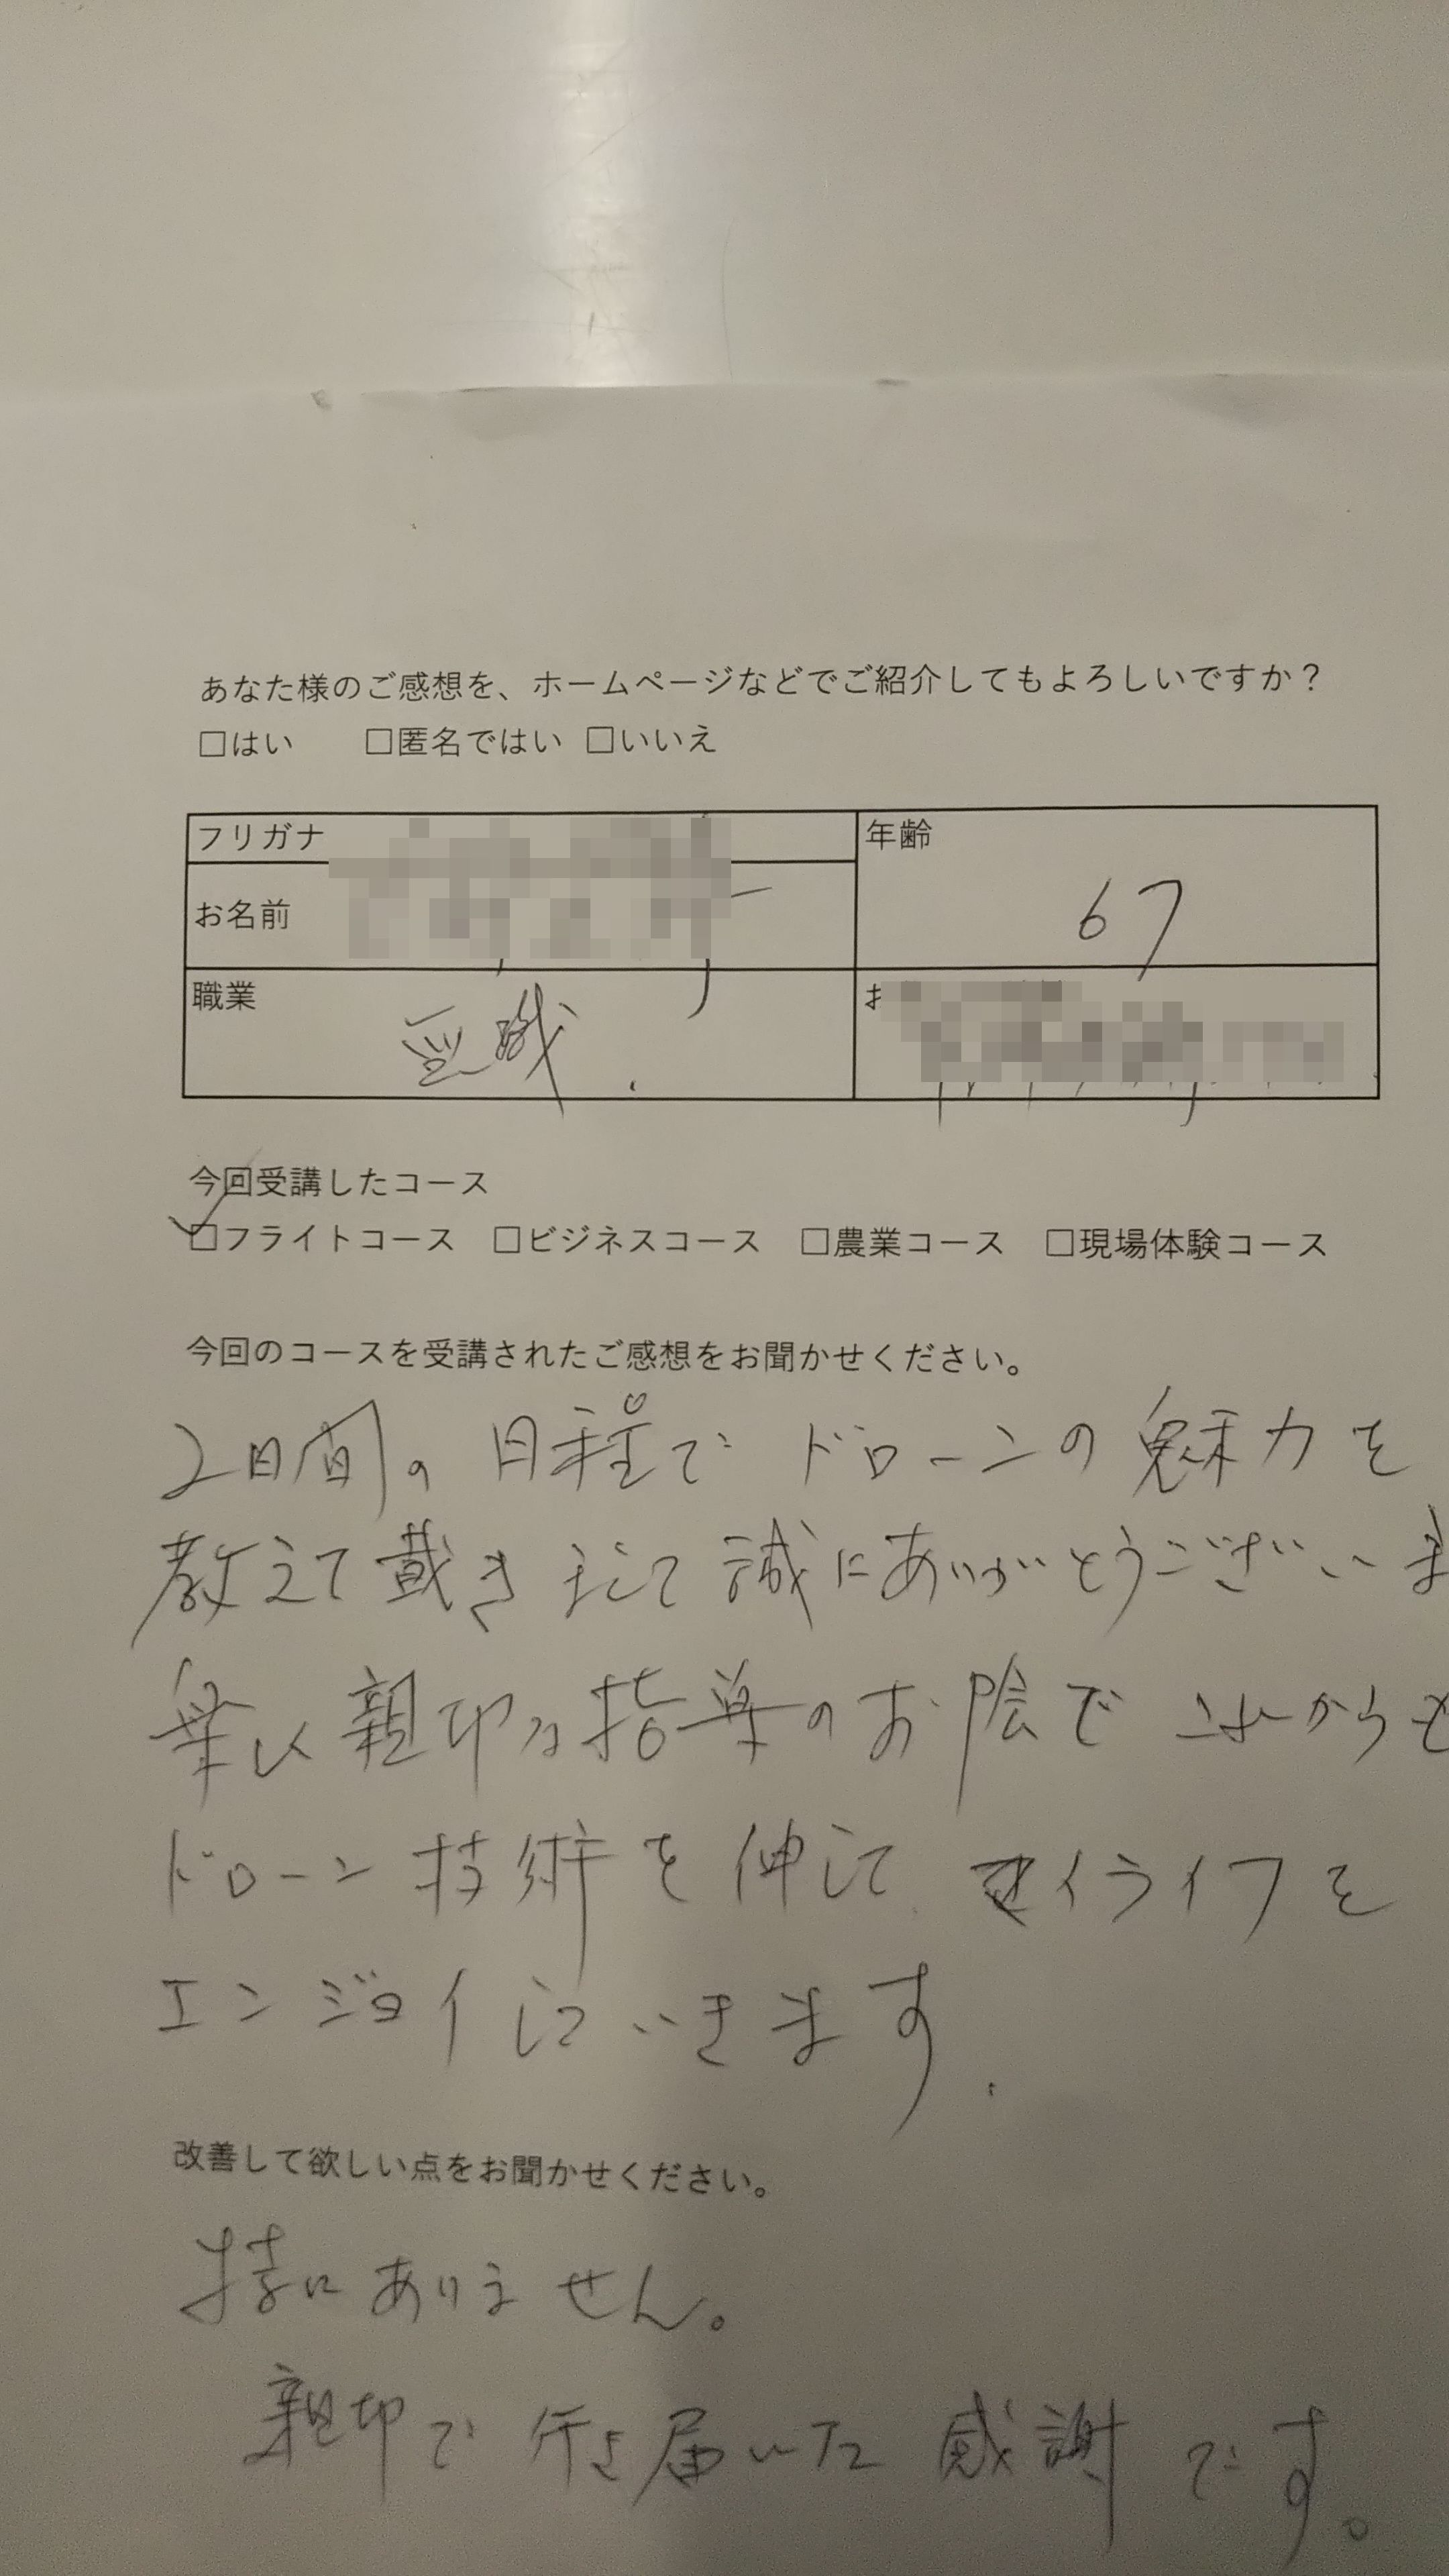 あなた様のご感想を、ホームページなどでご紹介してもよろしいですか？
□はい □匿名ではい □いいえ
フリガナ
年齢
お名前
67
職業
無職.
お
今回受講したコース
☑フライトコース □ビジネスコース □農業コース □現場体験コース
今回のコースを受講されたご感想をお聞かせください。
2日間の日程でドローンの魅力を
教えて戴きまして誠にありがとうございま
親切な指導のお陰でこれからも
ドローン技術を伸して マイライフを
エンジョイしていきます.
改善して欲しい点をお聞かせください。
特にありません。
親切で行き届いた感謝です。